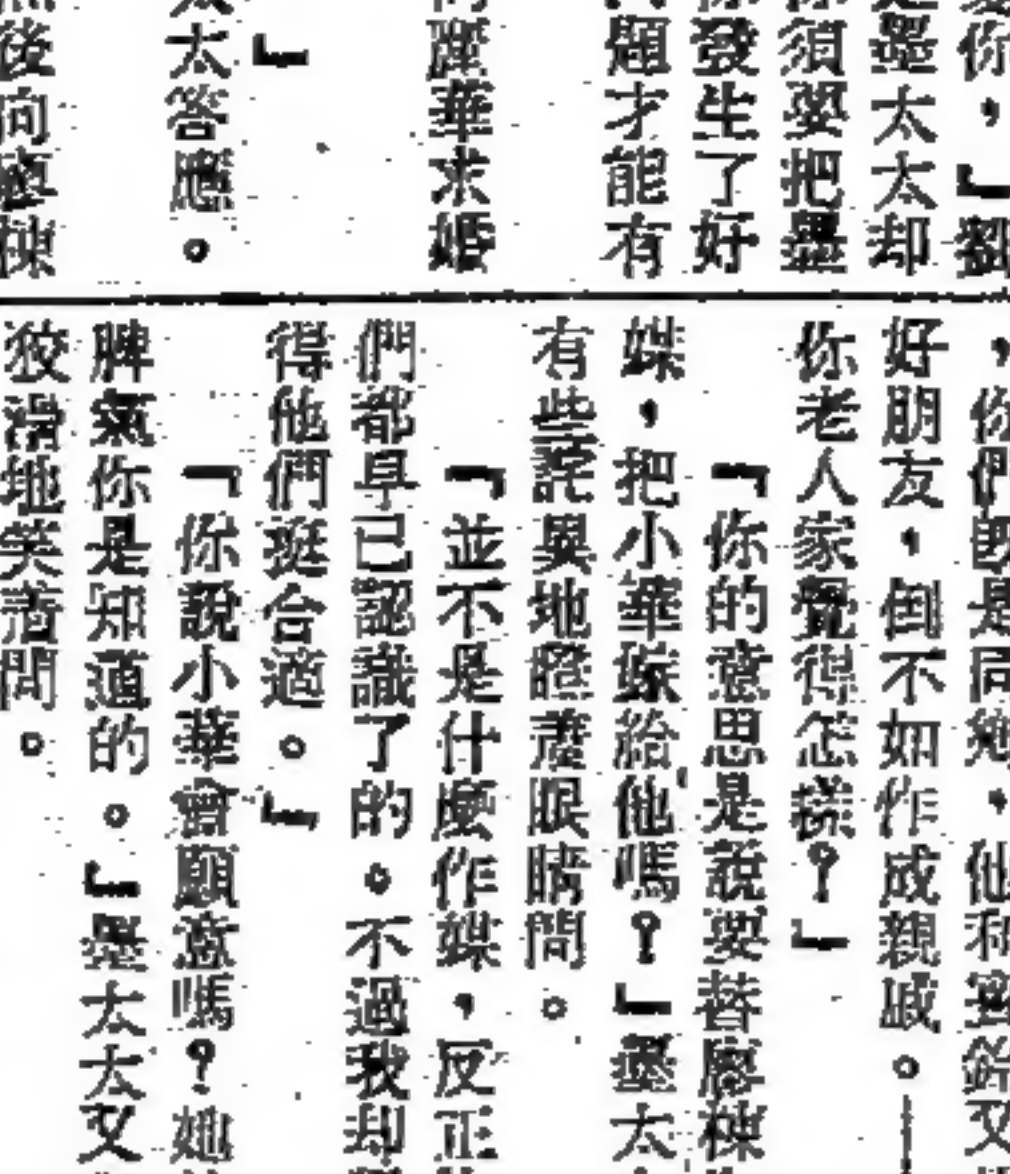 你，』劉
墨太太却
你須要把墨
你發生了好
題才能有
華求婚
』
太太答應。
然後向廖棟
，你們既是同鄉，他和蜜鈴又
好朋友，倒不如作成親戚。—
你老人家覺得怎樣？』
『你的意思是說要替廖棟
媒，把小華嫁給他嗎？』墨太
有些詫異地瞪着眼睛問。
『並不是什麼作媒，反正
們都早已認識了的。不過我却
得他們挺合適。』
『你說小華會願意嗎？她
脾氣你是知道的。』墨太太又
狡滑地笑着問。